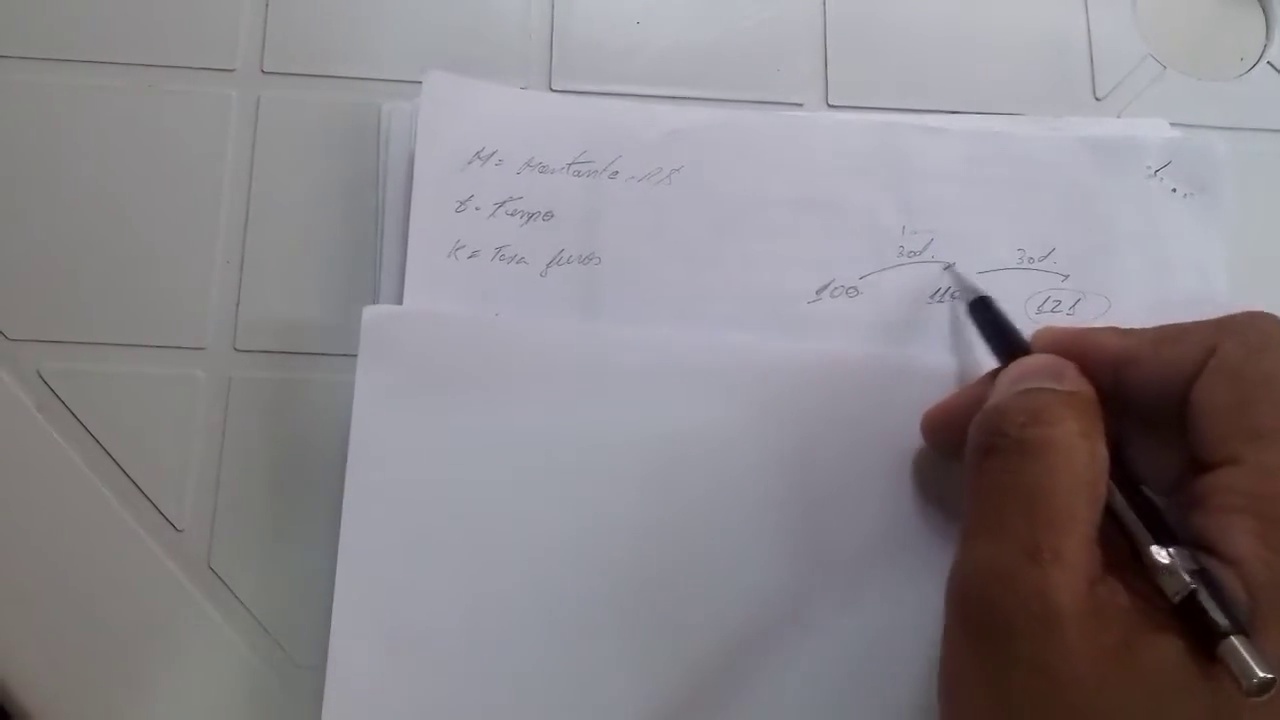 M= Montante - R$
t - Tempo
K = Taxa juros
30d. 30d.
100 110 121